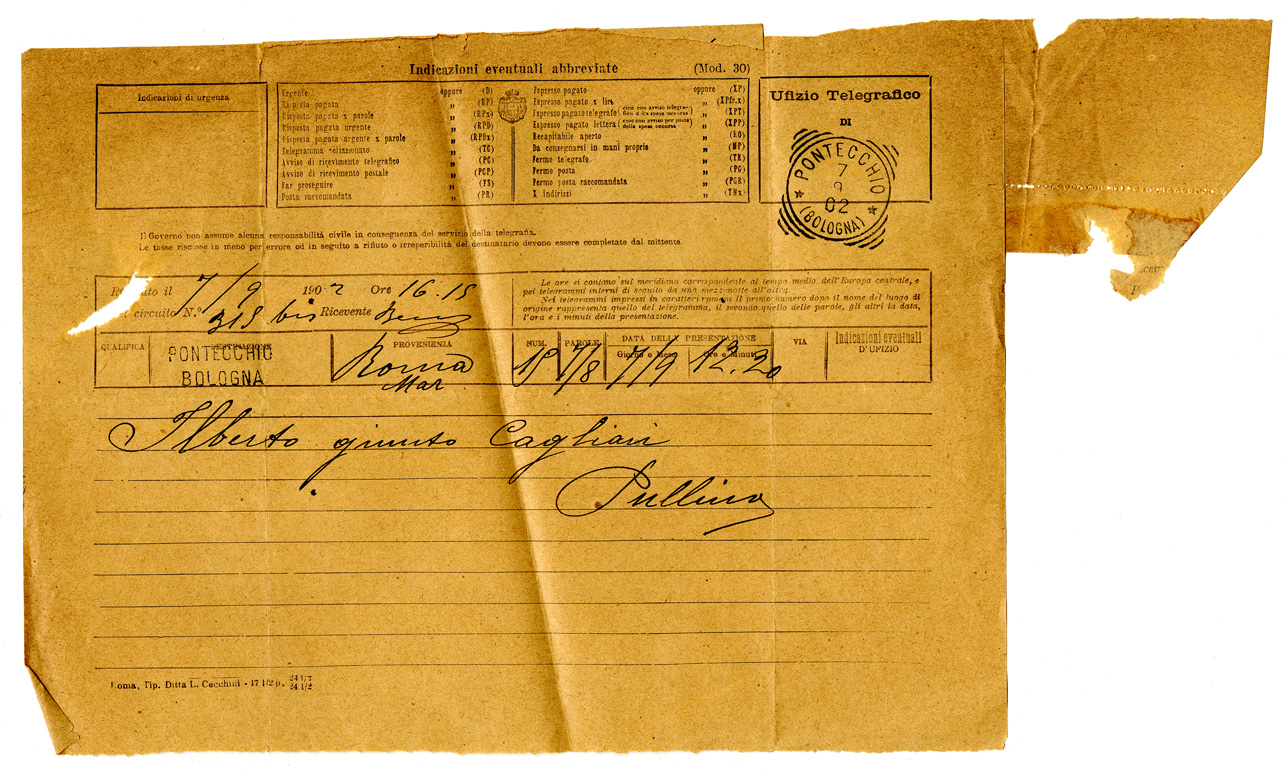 Indicazioni eventuali abbreviate (Mod. 30)
Indicazioni di urgenza
Urgente oppure (D)
Risposta pagata „ (RP)
Risposta pagata x parole „ (RPx)
Risposta pagata urgente „ (RPD)
Risposta pagata urgente x parole „ (RPDx)
Telegramma collazionato „ (TC)
Avviso di ricevimento telegrafico „ (PC)
Avviso di ricevimento postale „ (PCP)
Far proseguire „ (FS)
Posta raccomandata „ (PR)
Espresso pagato oppure (XP)
Espresso pagato x lire „ (XPfr.x)
Espresso pagato telegrafo (cioè con avviso telegrafico della spesa occorsa) „ (XPT)
Espresso pagato lettera (cioè con avviso per posta della spesa occorsa) „ (XPP)
Recapitabile aperto „ (RO)
Da consegnarsi in mani proprie „ (MP)
Fermo telegrafo „ (TR)
Fermo posta „ (PG)
Fermo posta raccomandata „ (PGR)
X indirizzi „ (TMx)
Ufizio Telegrafico
DI
PONTECCHIO
7
9
02
(BOLOGNA)
Il Governo non assume alcuna responsabilità civile in conseguenza del servizio della telegrafia.
Le tasse riscosse in meno per errore od in seguito a rifiuto o irreperibilità del destinatario devono essere completate dal mittente.
il 7/9 1902 Ore 16.15
circuito N.° 315 bis Ricevente
Le ore si contano sul meridiano corrispondente al tempo medio dell'Europa centrale, e
pei telegrammi interni di seguito da una mezzanotte all'altra.
Nei telegrammi impressi in caratteri romani il primo numero dopo il nome del luogo di
origine rappresenta quello del telegramma, il secondo quello delle parole, gli altri la data,
l'ora e i minuti della presentazione.
QUALIFICA DESTINAZIONE PROVENIENZA NUM. PAROLE DATA DELLA PRESENTAZIONE VIA Indicazioni eventuali
Giorno e Mese Ore e Minuti D'UFIZIO
PONTECCHIO
BOLOGNA
Roma 15 7/8 7/9 12.20
Mar
Alberto giunto Cagliari
Pullino
Roma, Tip. Ditta L. Cecchini - 17 1/2 p. 24 1/2
24 1/2